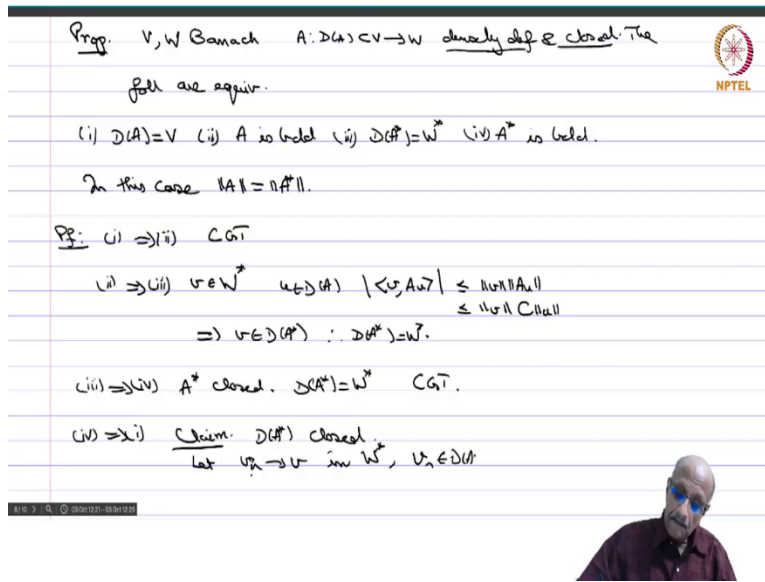 Prop. V, W Banach A: D(A) ⊂ V → W densely def & closed. The
foll are equiv.
(i) D(A)=V (ii) A is bdd (iii) D(A*)=W* (iv) A* is bdd.
In this case ‖A‖=‖A*‖.
Pf: (i) ⇒(ii) CGT
(ii) ⇒(iii) v∈W* u∈D(A) |<v,Au>| ≤ ‖v‖‖Au‖
≤ ‖v‖ C‖u‖
⇒ v∈D(A*) ∴ D(A*)=W*.
(iii)⇒(iv) A* closed. D(A*)=W* CGT.
(iv) ⇒(i) Claim. D(A*) closed.
Let vₙ→v in W*, vₙ∈D(A
NPTEL
8/10 03 Oct 12:21 - 03 Oct 12:25